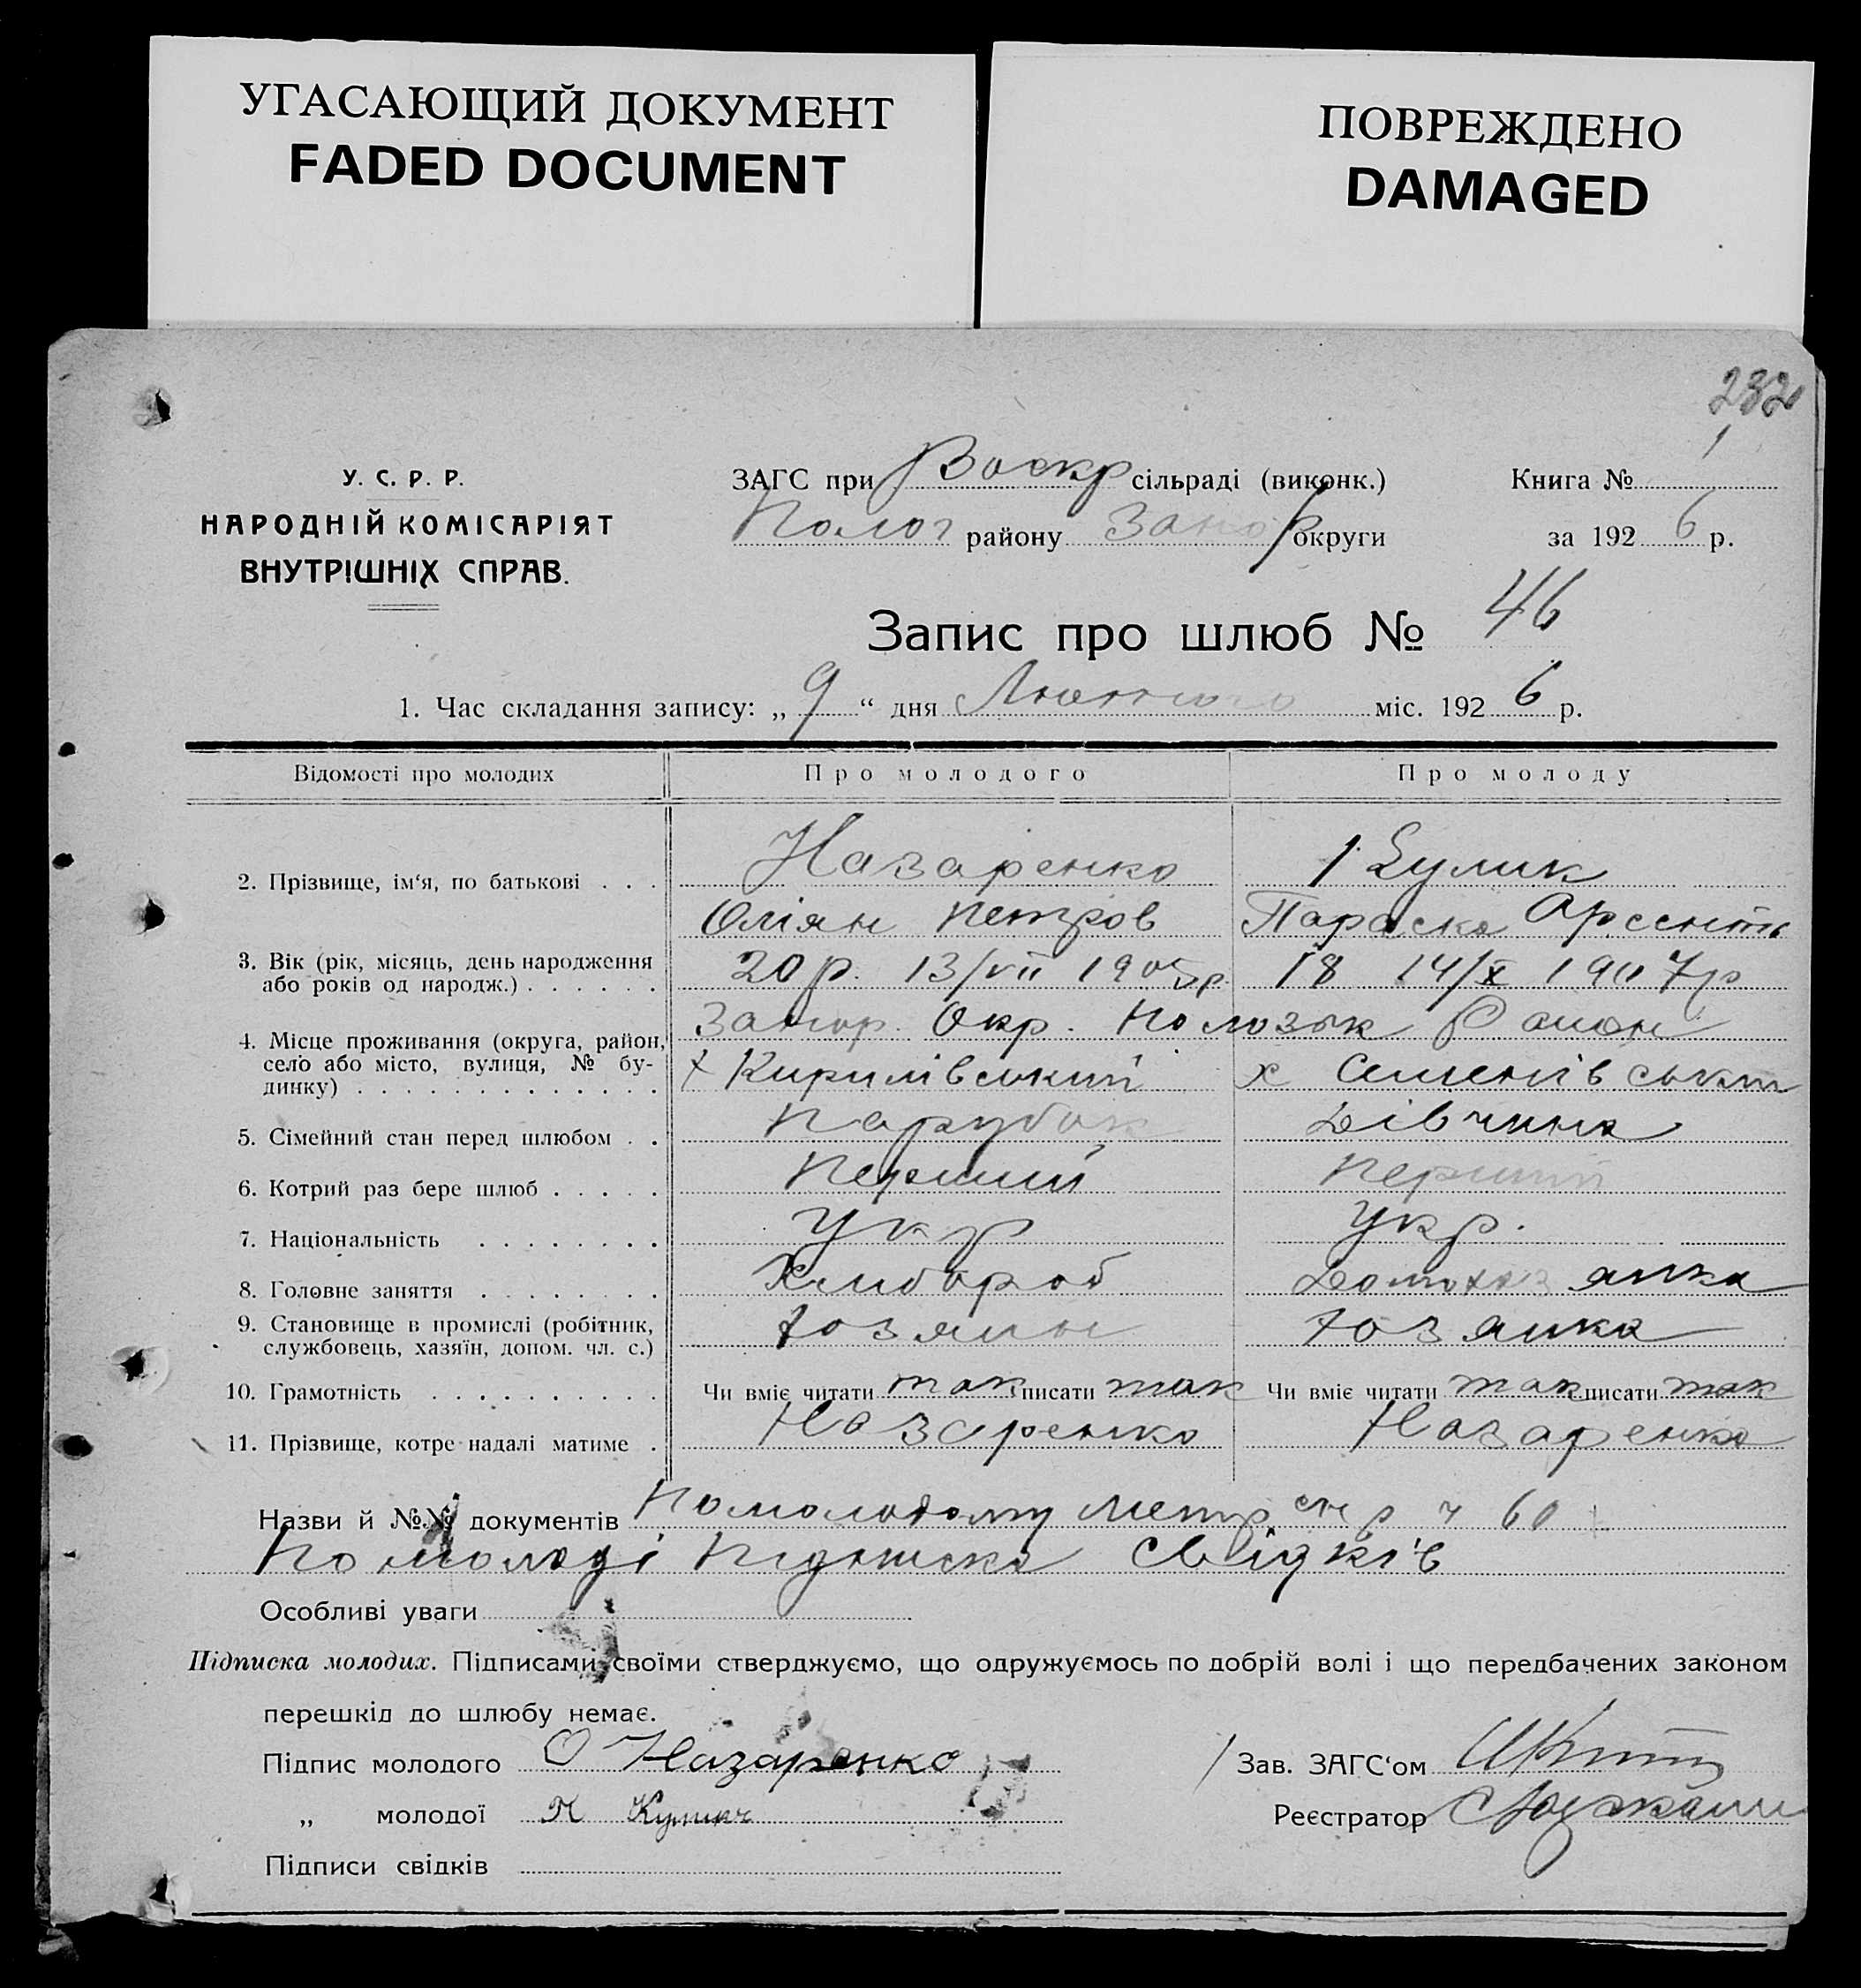 УГАСАЮЩИЙ ДОКУМЕНТ
FADED DOCUMENT
ПОВРЕЖДЕНО
DAMAGED
232
У. С. Р. Р.
НАРОДНІЙ КОМІСАРІЯТ
ВНУТРІШНІХ СПРАВ.
ЗАГС при Воскр сільраді (виконк.) Книга № 1
Полог району Запор округи за 1926 р.
Запис про шлюб № 46
1. Час складання запису: „ 9 “ дня Лютого міс. 1926 р.
Відомості про молодих Про молодого Про молоду
2. Прізвище, ім‘я, по батькові . . . Назаренко Кулик
Оліян Петров Параска Арсентів
3. Вік (рік, місяць, день народження
або років од народж.) . . . . . . 20 р. 13/VII 1905 р. 18 14/X 1907 р
Запор. Окр. Полозьк Район
4. Місце проживання (округа, район,
село або місто, вулиця, № бу-
динку) . . . . . . . . . . . . . х Кирилівський х Семенівськи
5. Сімейний стан перед шлюбом . . Парубок Дівчина
6. Котрий раз бере шлюб . . . . . Перший Перший
7. Національність . . . . . . . . Укр Укр.
8. Головне заняття . . . . . . . . Хлибороб Домохозяйка
9. Становище в промислі (робітник,
службовець, хазяїн, допом. чл. с.) Хозяин Хозяйка
10. Грамотність . . . . . . . . . . Чи вміє читати так писати так Чи вміє читати так писати так
11. Прізвище, котре надалі матиме . Назаренко Назаренко
Назви й №№ документів По молодому Метр 60
По молоді Підписка свідків
Особливі уваги
Підписка молодих. Підписами своїми стверджуємо, що одружуємось по добрій волі і що передбачених законом
перешкід до шлюбу немає.
Підпис молодого О Назаренко Зав. ЗАГС‘ом
„ молодої П Кулик Реєстратор
Підписи свідків